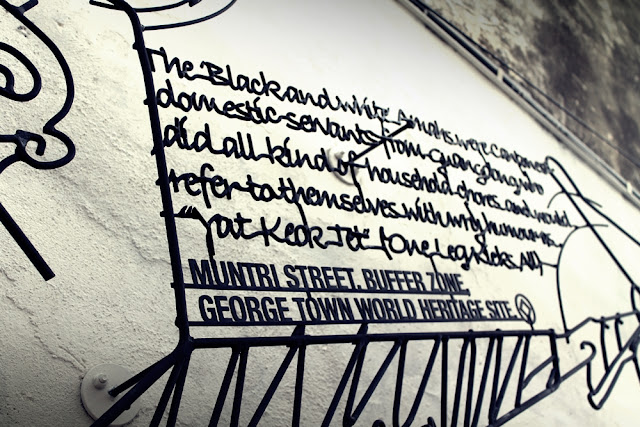 The 'Black and white' Amahs were Cantonese
domestic servants from Guangdong who
did all kind of household chores and would
refer to themselves with wry humour as
"Yat Keok Tet" (One Leg Kicks All)
MUNTRI STREET, BUFFER ZONE,
GEORGE TOWN WORLD HERITAGE SITE.